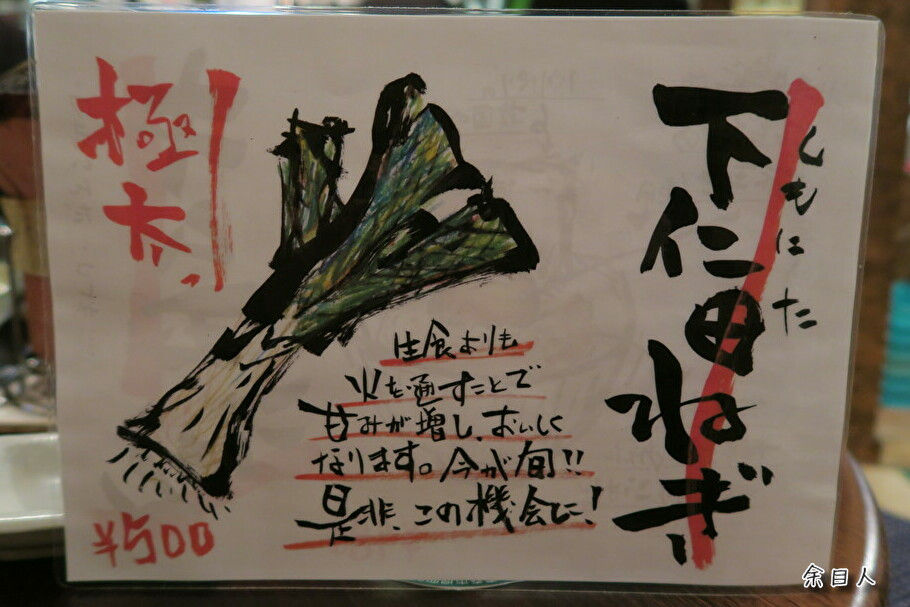 下仁田ねぎ
しもにた
極太っ
生食よりも
火を通すことで
甘みが増し、おいしく
なります。今が旬!!
是非、この機会に!
¥500
余目人